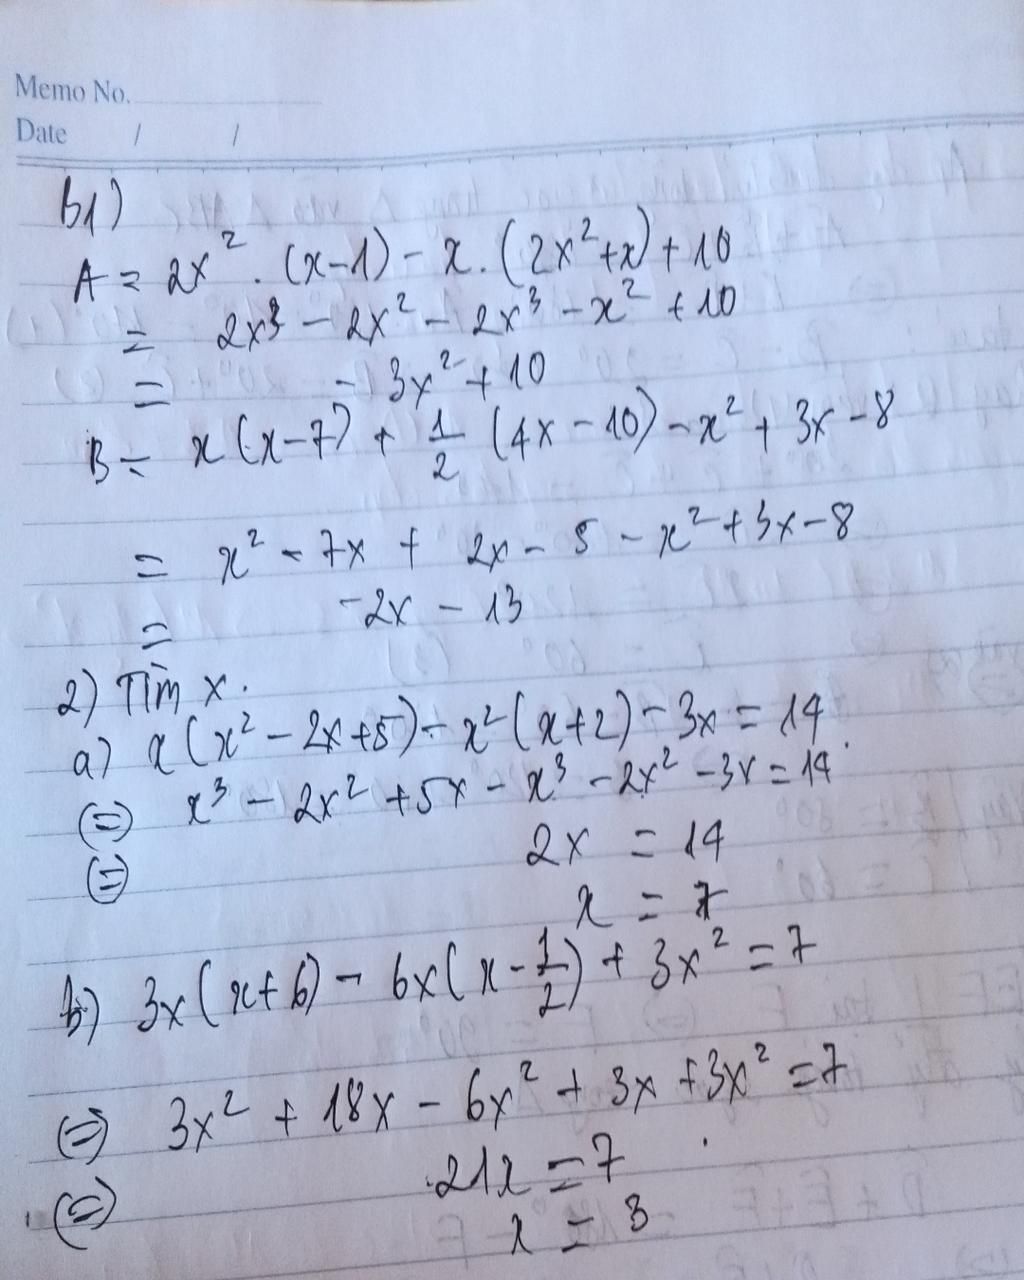 Memo No.
Date / /
b1)
A = 2x² . (x-1) - x. (2x²+x) + 10
= 2x³ - 2x² - 2x³ - x² + 10
= - 3x² + 10
B = x(x-7) + 1/2 (4x - 10) - x² + 3x - 8
= x² - 7x + 2x - 5 - x² + 3x - 8
= -2x - 13
2) Tìm x.
a) x(x² - 2x+5) - x²(x+2) - 3x = 14
(=) x³ - 2x² + 5x - x³ - 2x² - 3x = 14
(=) 2x = 14
x = 7
b) 3x(x+6) - 6x(x - 1/2) + 3x² = 7
(=) 3x² + 18x - 6x² + 3x + 3x² = 7
(=) 21x = 7
x = 3